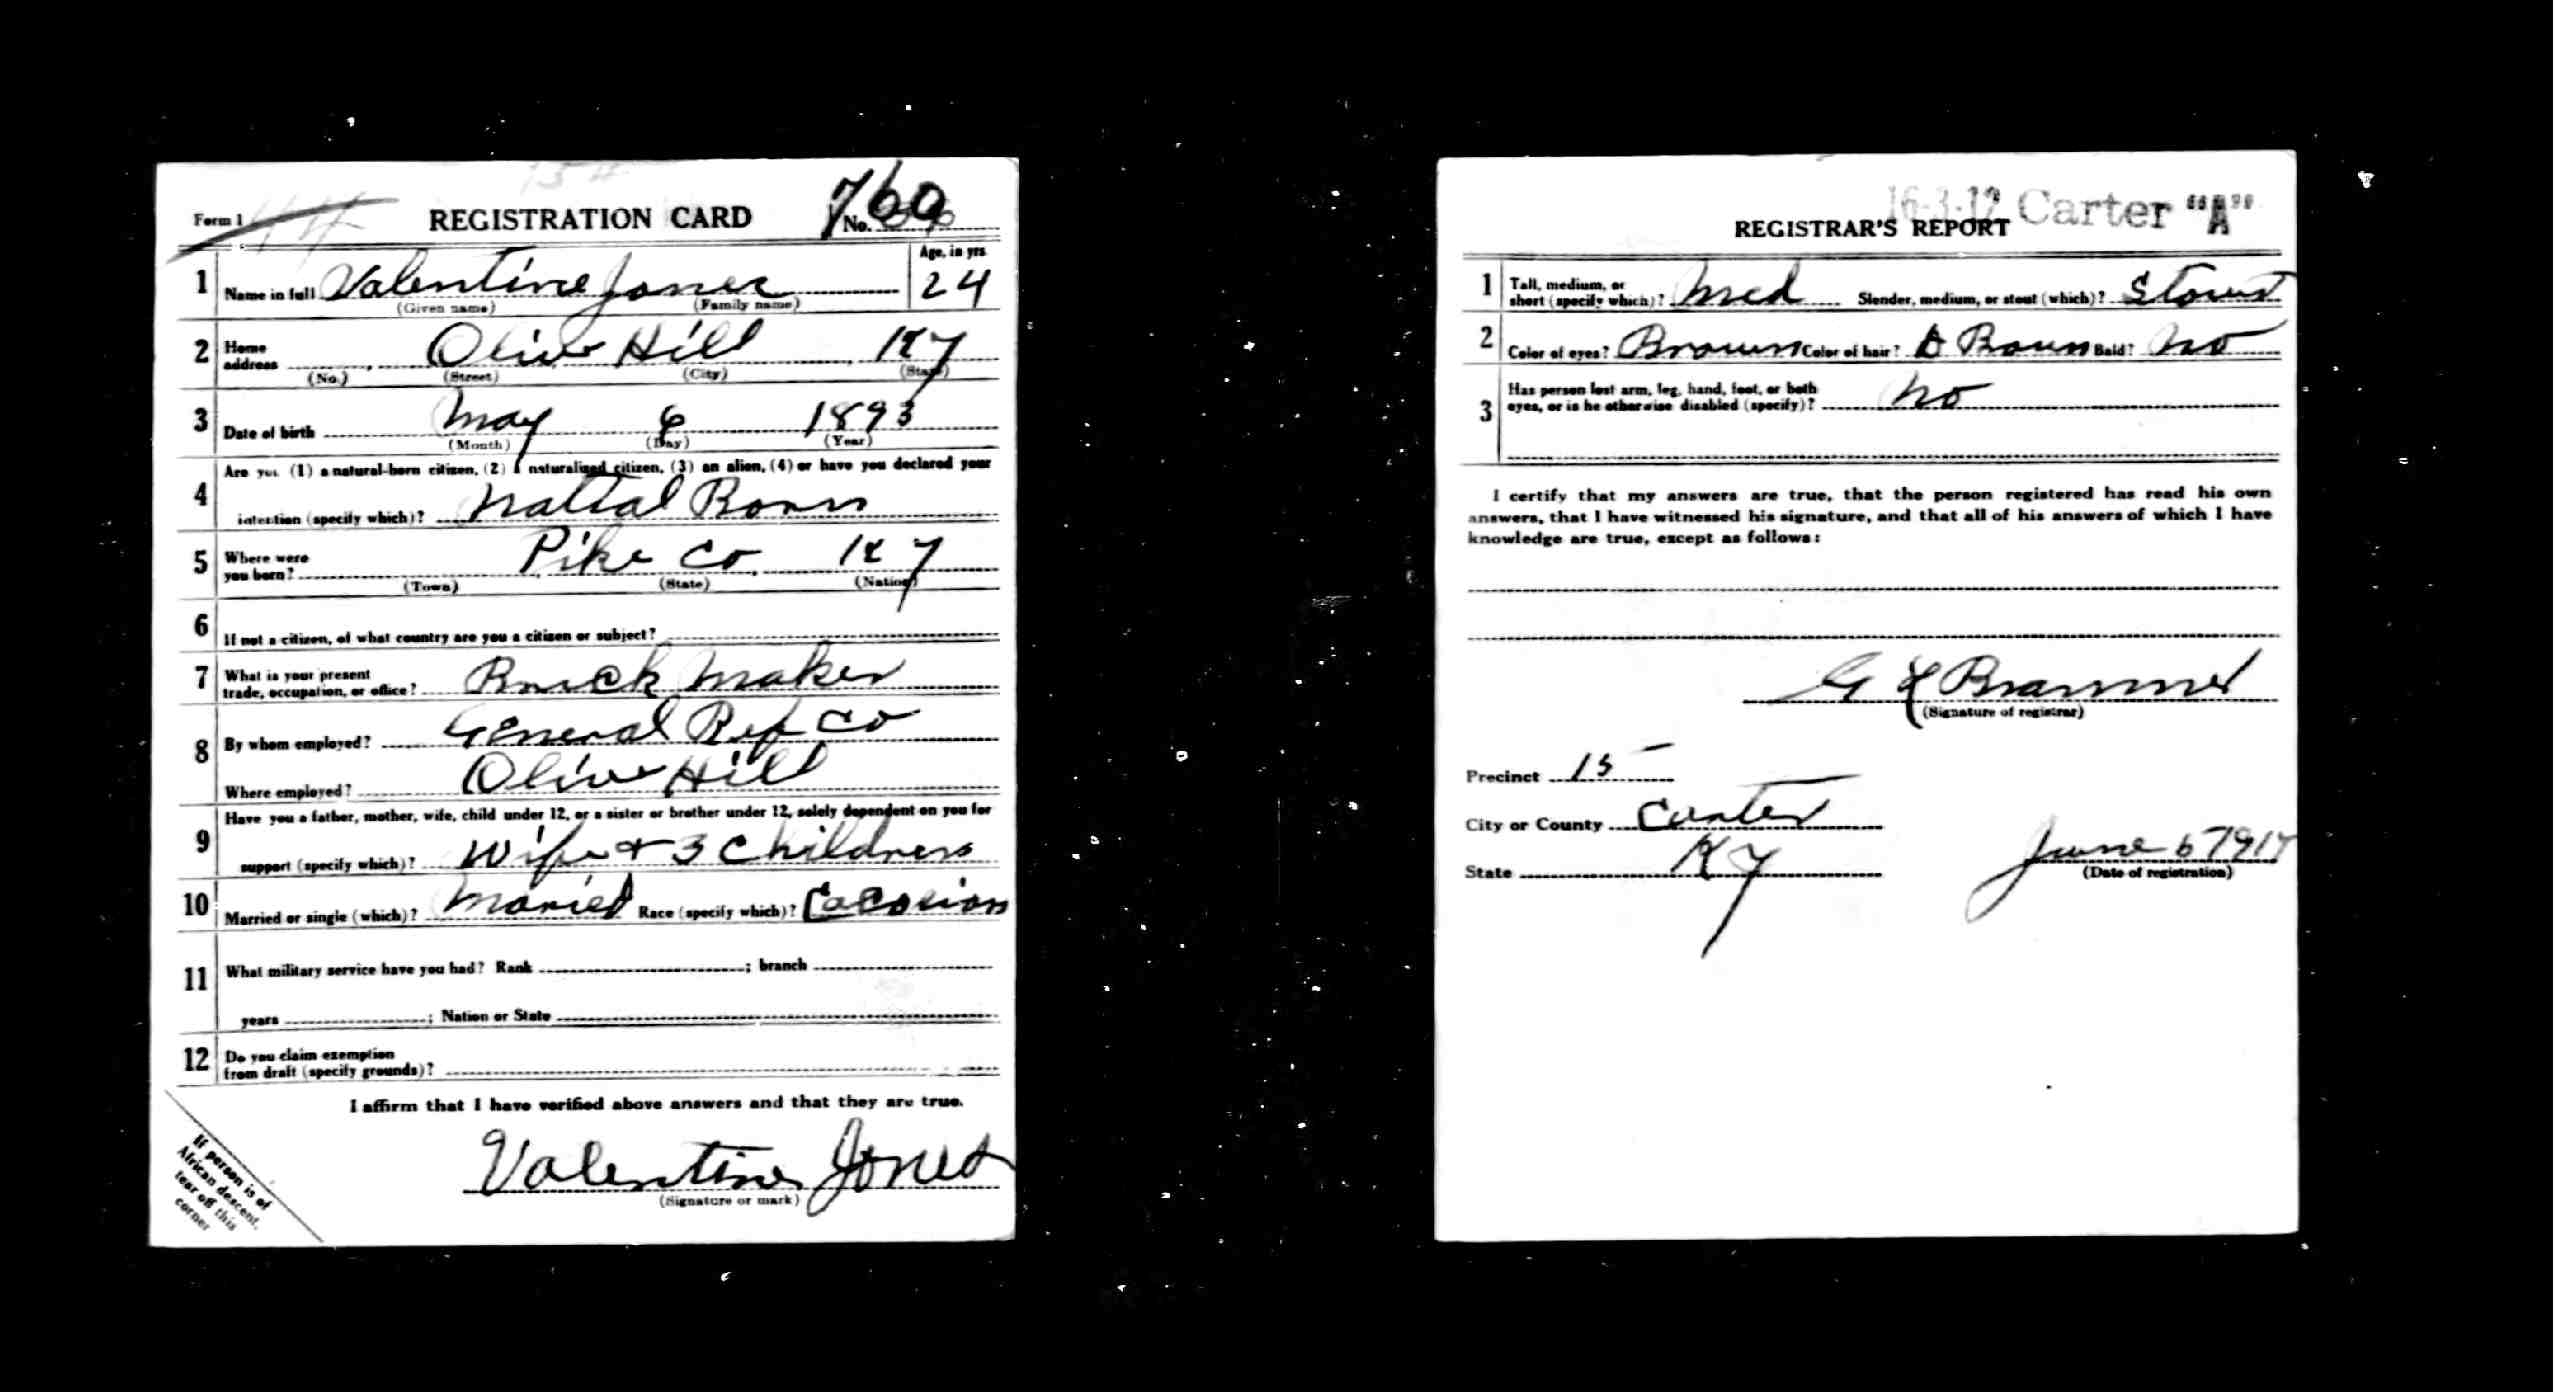 Form 1
REGISTRATION CARD
No. 760
1 Name in full Valentine Jones
(Given name) (Family name)
Age, in yrs
24
2 Home address Olive Hill Ky
(No.) (Street) (City) (State)
3 Date of birth May 6 1893
(Month) (Day) (Year)
4 Are you (1) a natural-born citizen, (2) a naturalized citizen, (3) an alien, (4) or have you declared your
intention (specify which)? Nattal Born
5 Where were you born? Pike Co Ky
(Town) (State) (Nation)
6 If not a citizen, of what country are you a citizen or subject?
7 What is your present
trade, occupation, or office? Brick Maker
8 By whom employed? General Ref Co
Where employed? Olive Hill
9 Have you a father, mother, wife, child under 12, or a sister or brother under 12, solely dependent on you for
support (specify which)? Wife + 3 Children
10 Married or single (which)? Maried Race (specify which)? Cacosion
11 What military service have you had? Rank ; branch
years ; Nation or State
12 Do you claim exemption
from draft (specify grounds)?
I affirm that I have verified above answers and that they are true.
Valentine Jones
(Signature or mark)
If person is of
African descent,
tear off this
corner
16-3-12 Carter "A"
REGISTRAR'S REPORT
1 Tall, medium, or
short (specify which)? Med Slender, medium, or stout (which)? Stout
2 Color of eyes? Brown Color of hair? D Broun Bald? No
3 Has person lost arm, leg, hand, foot, or both
eyes, or is he otherwise disabled (specify)? No
I certify that my answers are true, that the person registered has read his own
answers, that I have witnessed his signature, and that all of his answers of which I have
knowledge are true, except as follows:
G Brammer
(Signature of registrar)
Precinct 15
City or County Carter
State Ky
June 5 1917
(Date of registration)